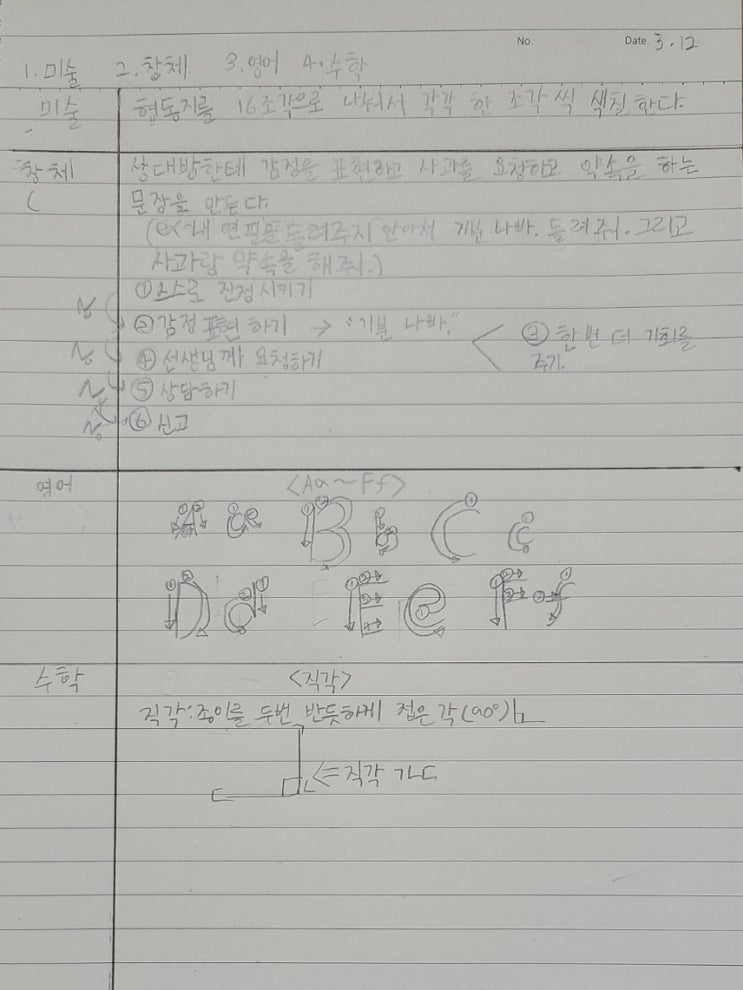 No.
Date. 3.12
1.미술 2.창체 3.영어 4.수학
미술 협동지를 16조각으로 나눠서 각각 한 조각 씩 색칠한다.
창체 상대방한테 감정을 표현하고 사과를 요청하고 약속을 하는
문장을 만든다.
(ex-내 연필을 돌려주지 안아서 기분 나빠. 돌려줘. 그리고
사과랑 약속을 해줘.)
① 스스로 진정시키기
② 감정 표현하기 → "기분 나빠."
③ 한번 더 기회를
주기.
④ 선생님께 요청하기
⑤ 상담하기
⑥ 신고
영어 <Aa~Ff>
A a B b C c
D d E e F f
수학 <직각>
직각:종이를 두번 반듯하게 접은 각(90°)
ㄱ
ㄷ ㄴ <=직각 ㄱㄴㄷ